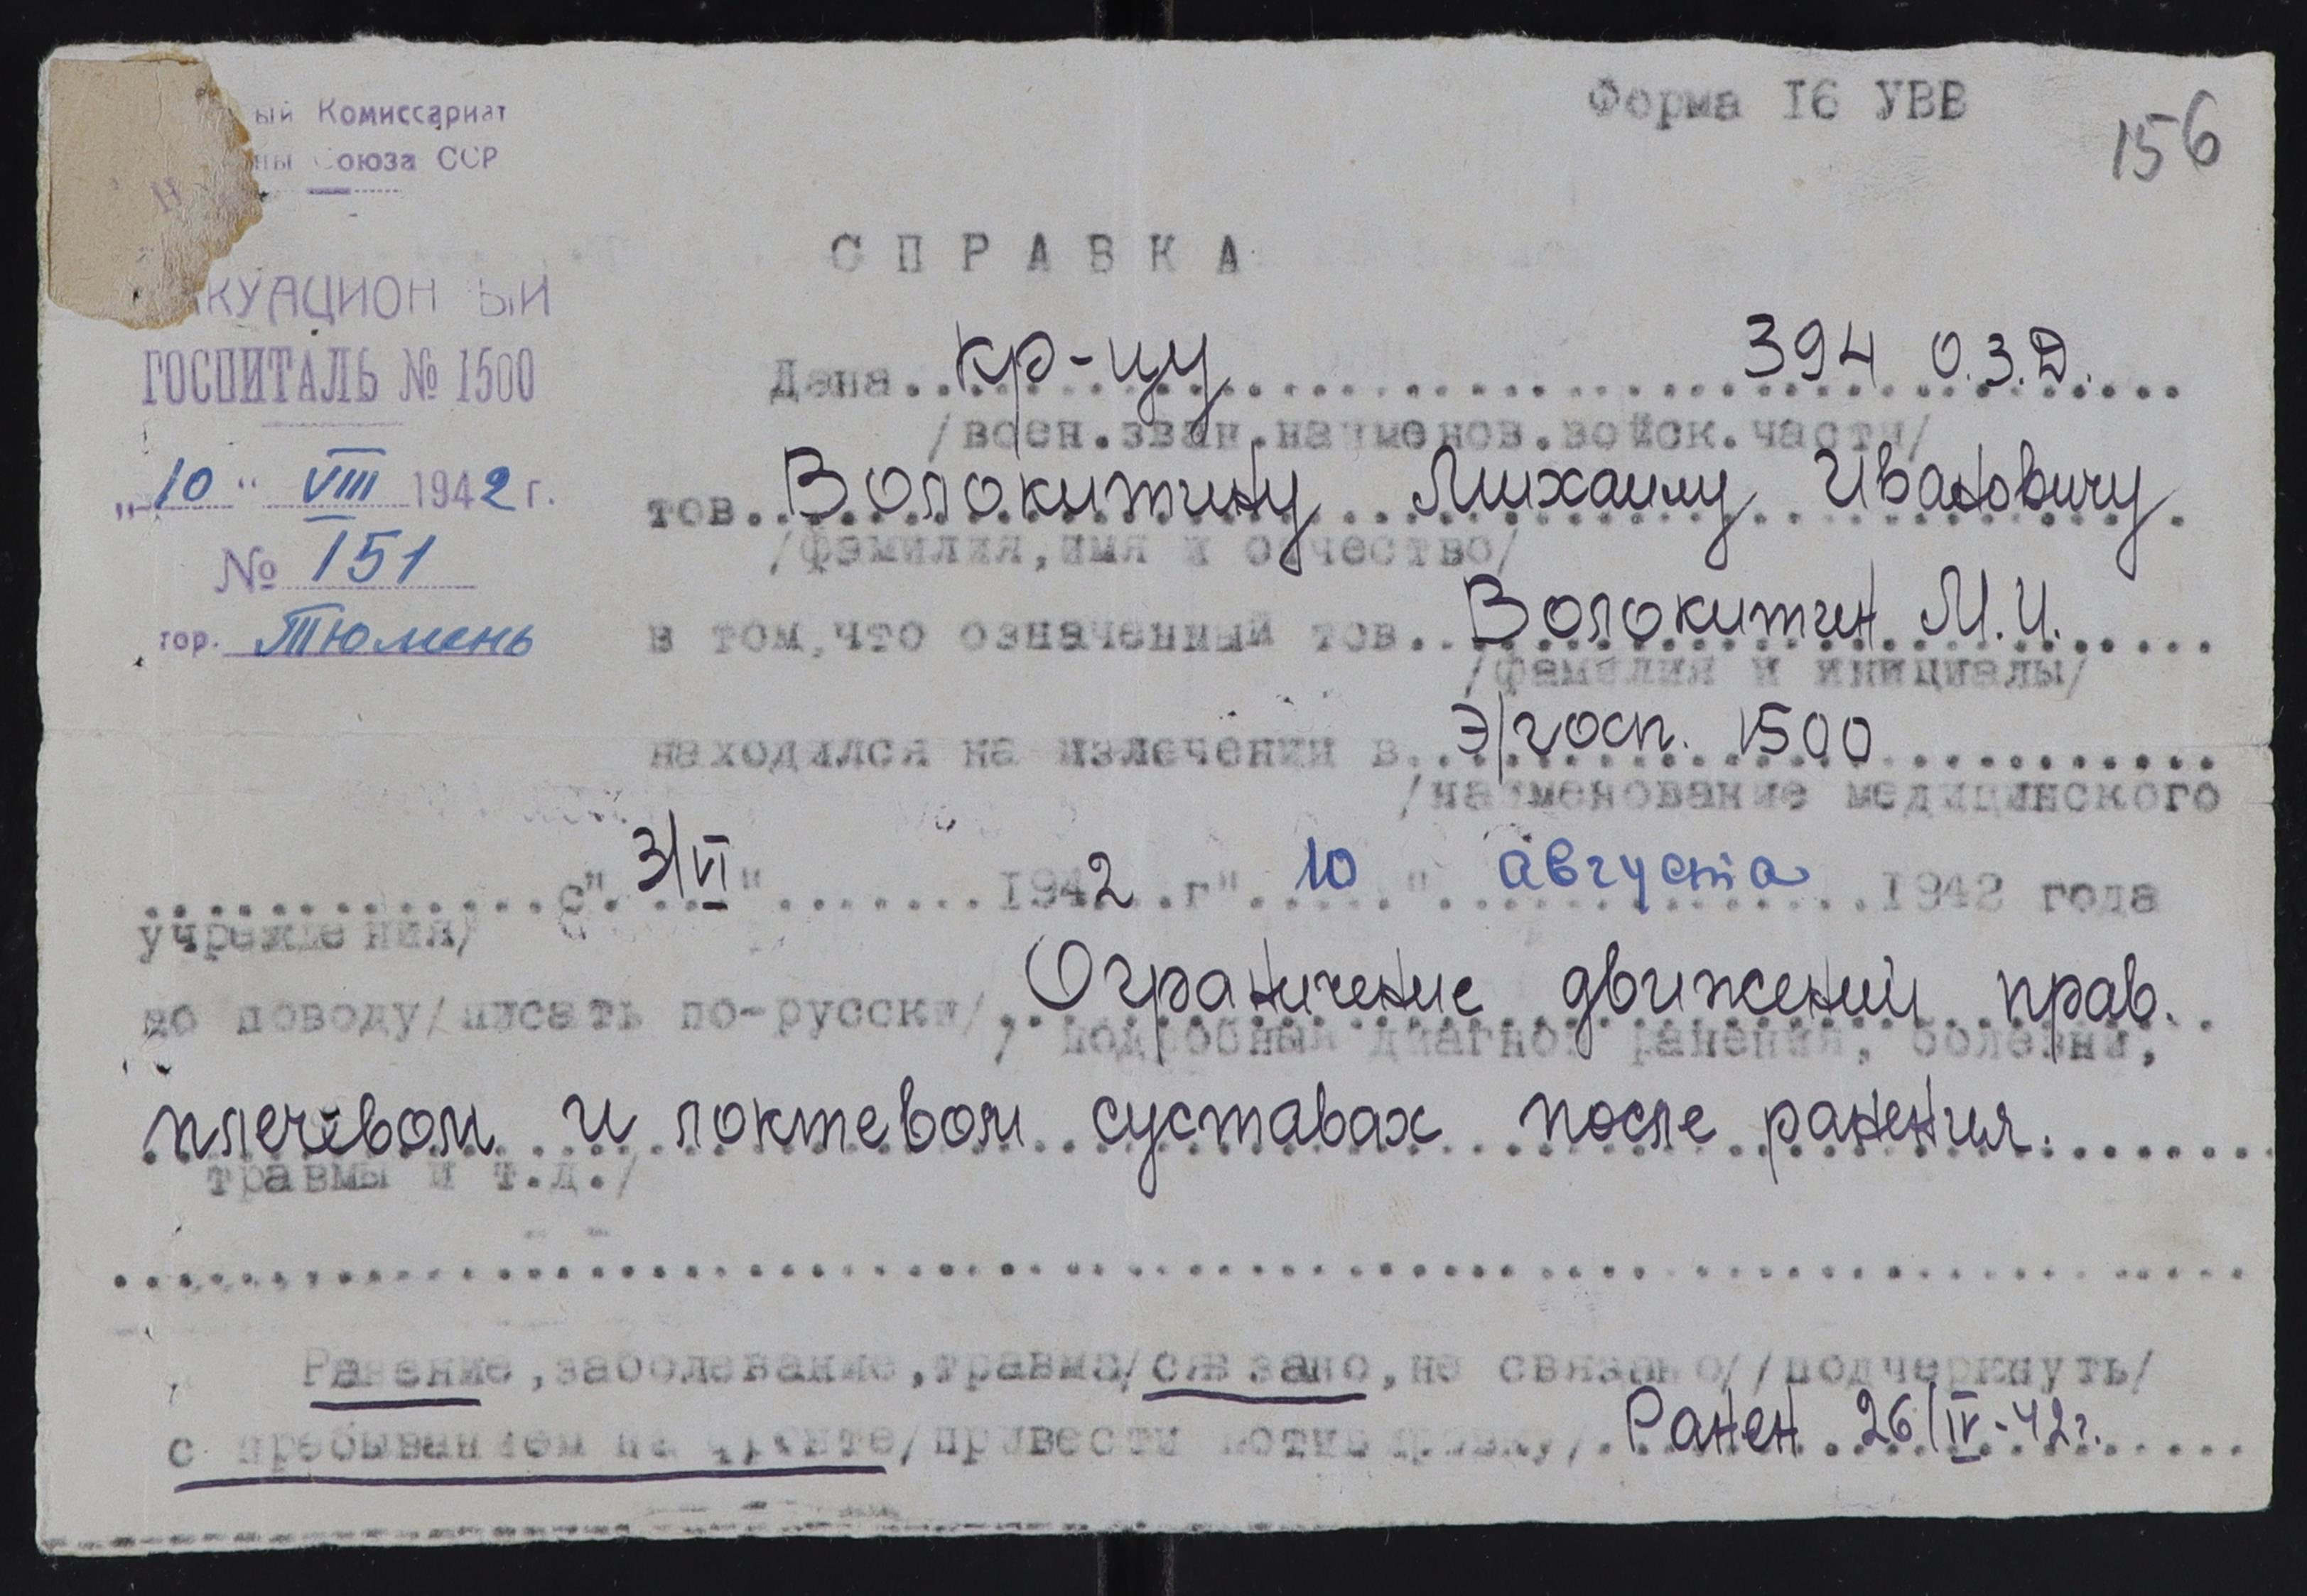 Форма 16 УВВ
156
ый Комиссариат
ны Союза ССР
СПРАВКА
КУАЦИОН ЫЙ
ГОСПИТАЛЬ № 1500
„10" VIII 1942 г.
№ 151
гор. Тюмень
Дана кр-цу 394 О.З.Д.
/воен.зван.наименов.войск.части/
тов. Волокитину Михаилу Ивановичу
/фамилия,имя и отчество/
в том,что означенный тов. Волокитин М.И.
/фамилия и инициалы/
находился на излечении в Э/госп. 1500
/наименование медицинского
с" 3/VI " 1942 г" 10 " августа 1942 года
учреждения/
по поводу/писать по-русски/ Ограничение движений прав.
/ подробный диагноз ранения, болезни,
плечевом и локтевом суставах после ранения.
травмы и т.д./
Ранение,заболевание,травма/связано,не связано//подчеркнуть/
с пребыванием на фронте/привести мотивировку/ Ранен 26/IV-42г.